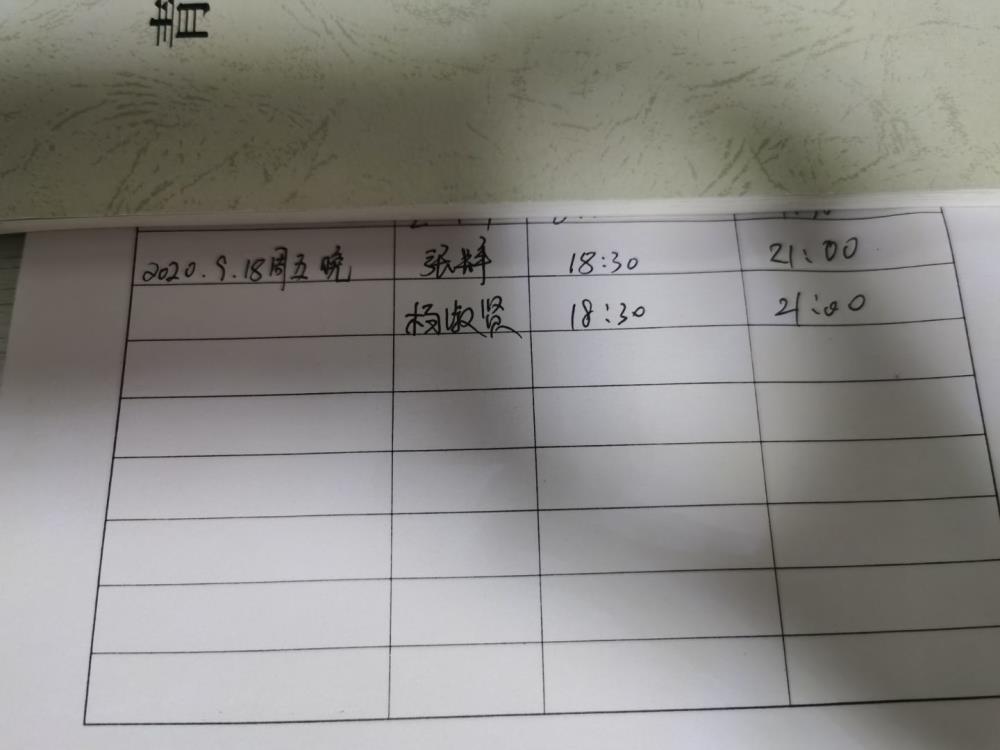 2020.9.18周五晚 张辉 18:30 21:00
杨淑贤 18:30 21:00